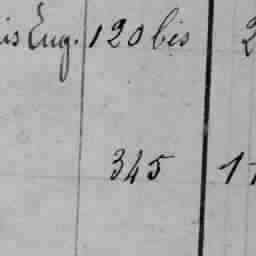 is Eug. 120 bis 2
345 1